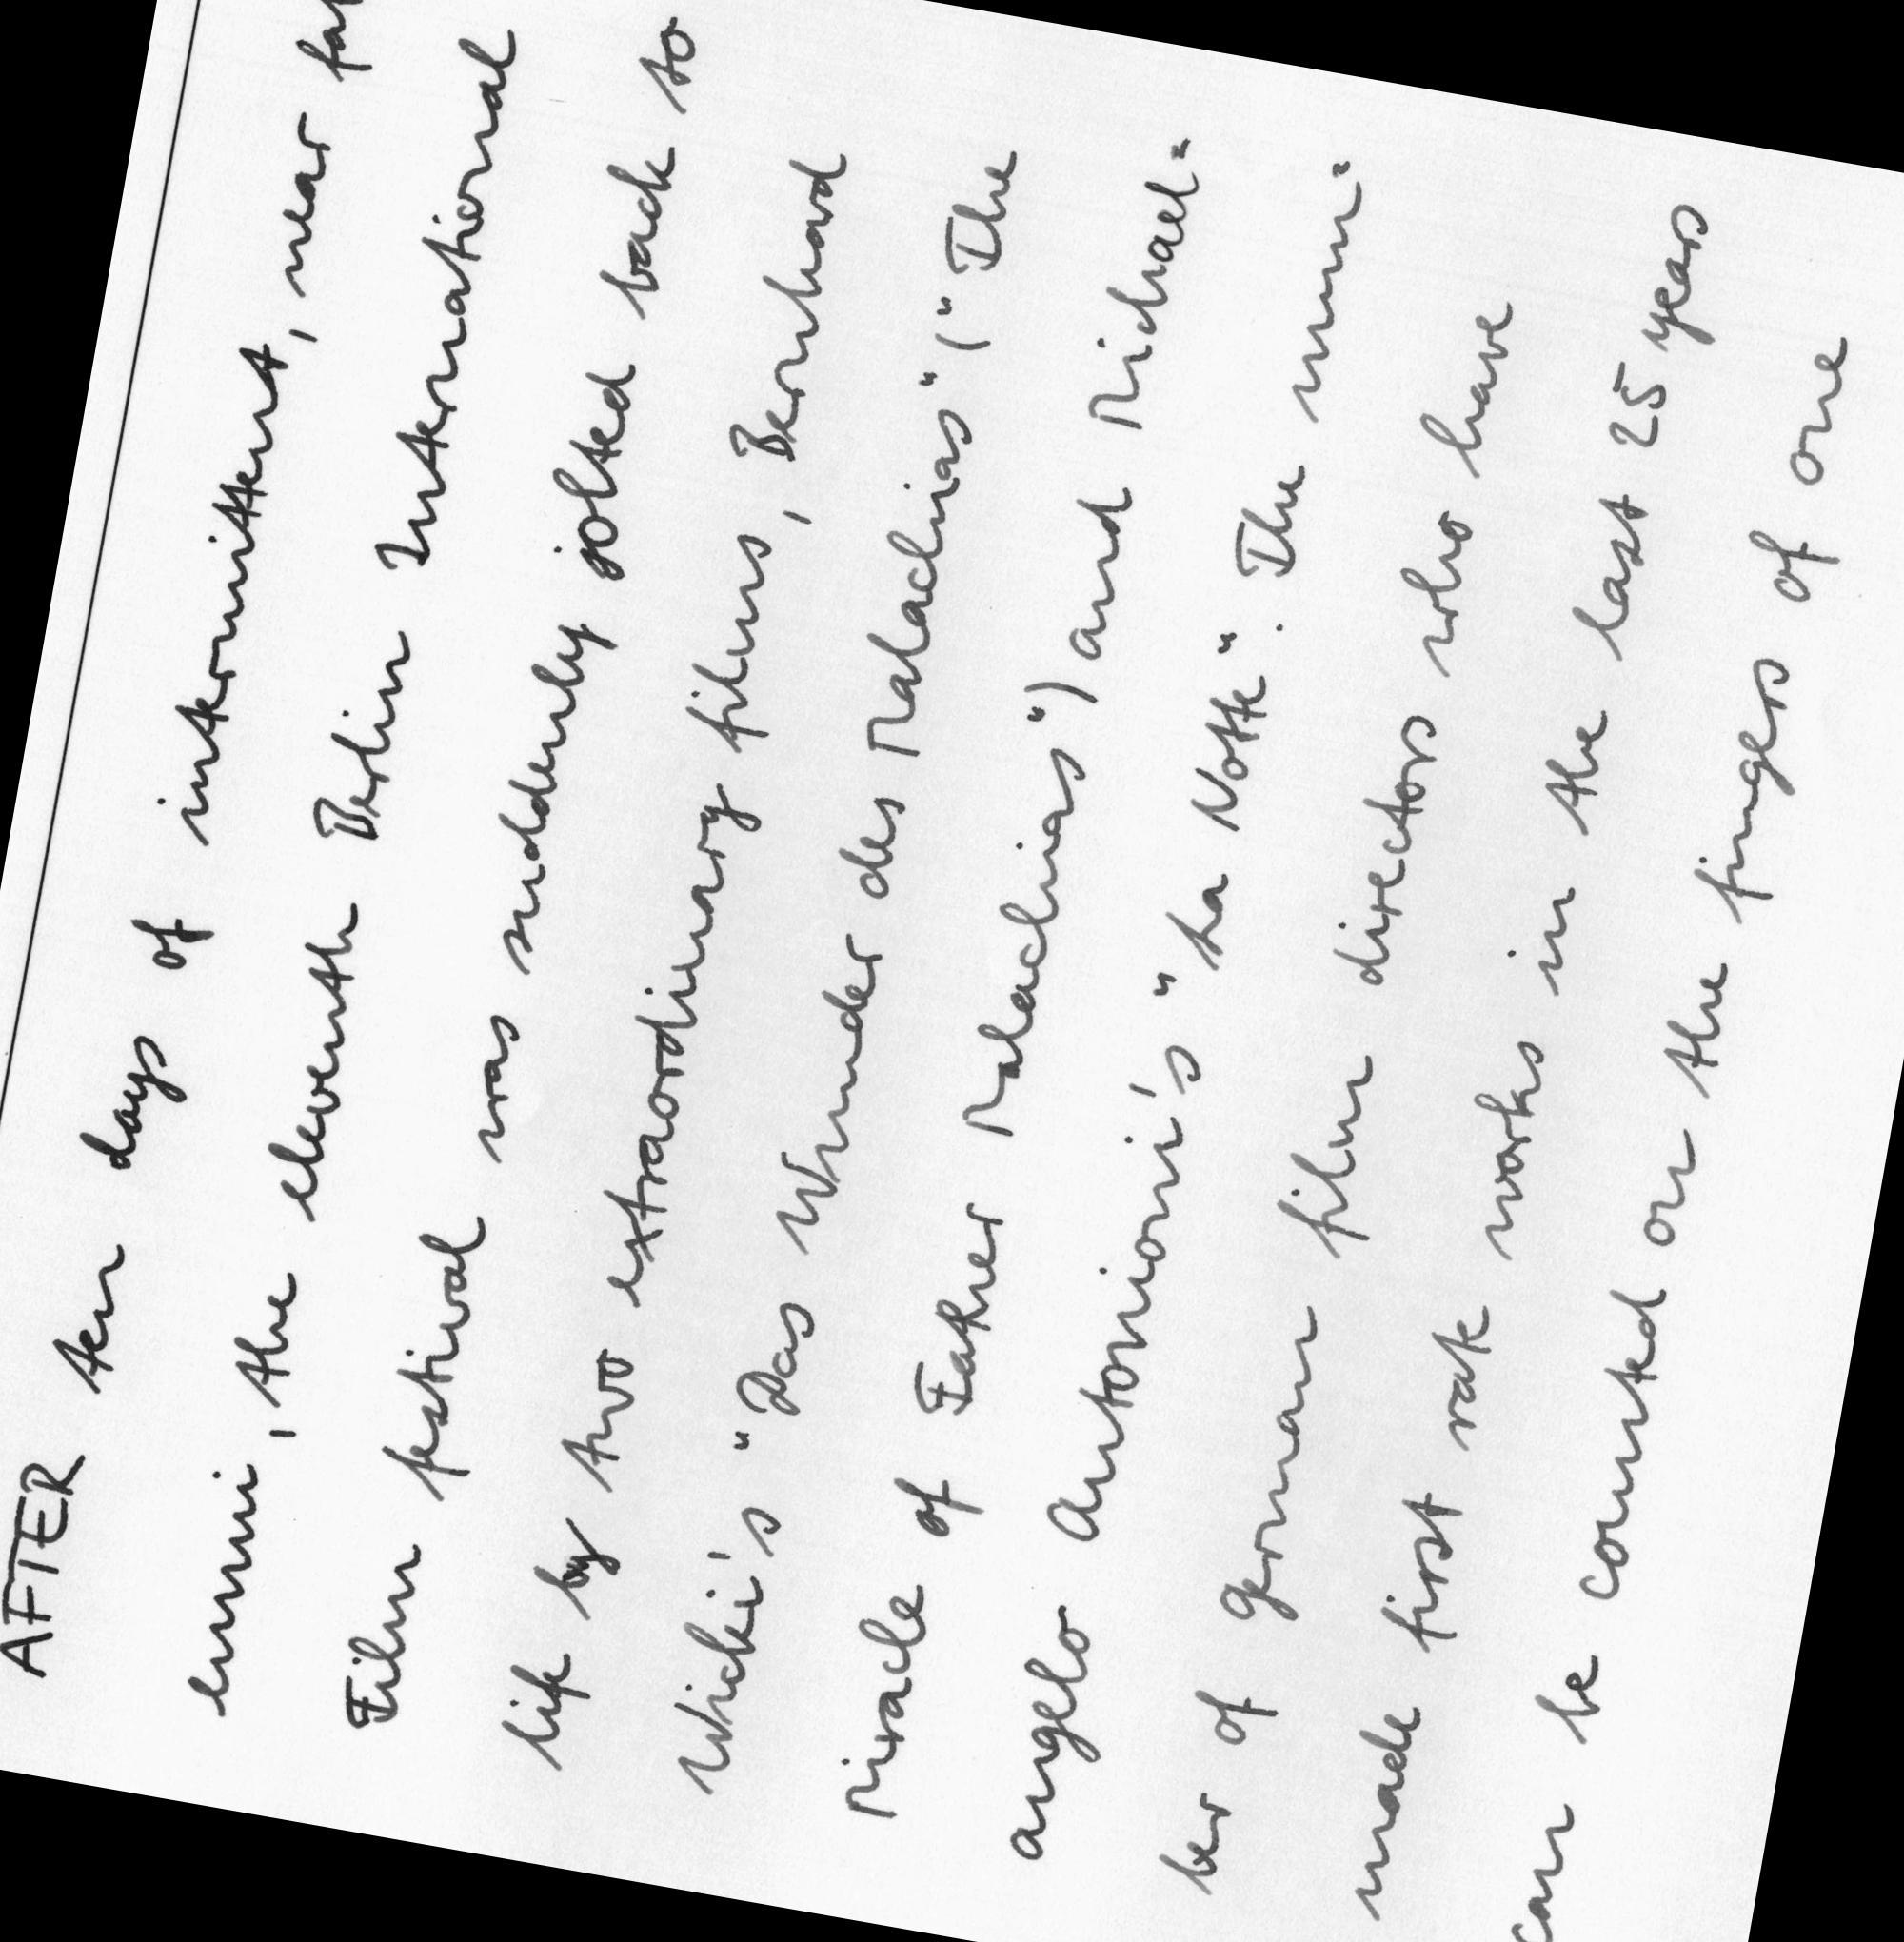 AFTER ten days of intermittent, near
ennui, the eleventh Berlin International
Film festival was suddenly jolted back to
life by two extraordinary films, Bernhard
Wicki's "Das Wunder des Malachias" ("The
Miracle of Father Malachias") and Michael-
angelo Antonioni's "La Notte". The num-
ber of german film directors who have
made first rate works in the last 25 years
can be counted on the fingers of one